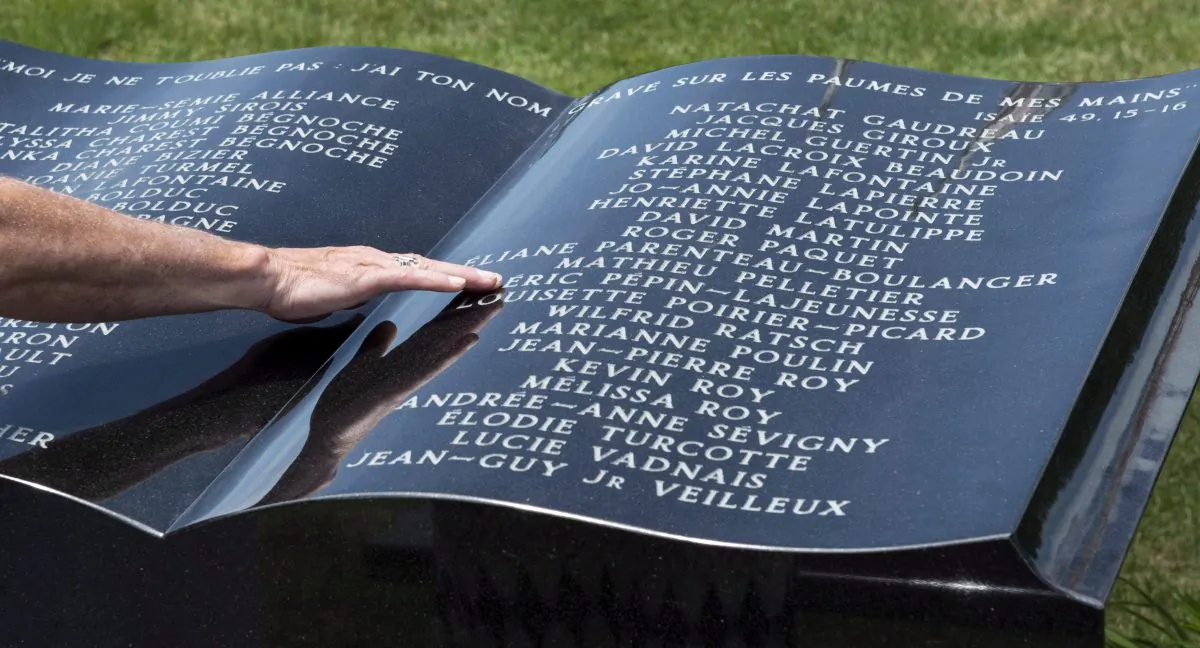 MOI JE NE T'OUBLIE PAS : J'AI TON NOM
MARIE-SÉMIE ALLIANCE
JIMMY SIROIS
TALITHA COUMI BÉGNOCHE
LYSSA CHAREST BÉGNOCHE
NKA CHAREST BÉGNOCHE
DIANE BIZIER
TURMEL
LAFONTAINE
BOLDUC
BOLDUC
GRAVÉ SUR LES PAUMES DE MES MAINS"
ISAÏE 49, 15-16
NATACHAT GAUDREAU
JACQUES GIROUX
MICHEL GUERTIN JR
DAVID LACROIX BEAUDOIN
KARINE LAFONTAINE
STÉPHANE LAPIERRE
JO-ANNIE LAPOINTE
HENRIETTE LATULIPPE
DAVID MARTIN
ROGER PAQUET
ÉLIANE PARENTEAU-BOULANGER
MATHIEU PELLETIER
ÉRIC PÉPIN-LAJEUNESSE
LOUISETTE POIRIER-PICARD
WILFRID RATSCH
MARIANNE POULIN
JEAN-PIERRE ROY
KEVIN ROY
MÉLISSA ROY
ANDRÉE-ANNE SÉVIGNY
ÉLODIE TURCOTTE
LUCIE VADNAIS
JEAN-GUY JR VEILLEUX